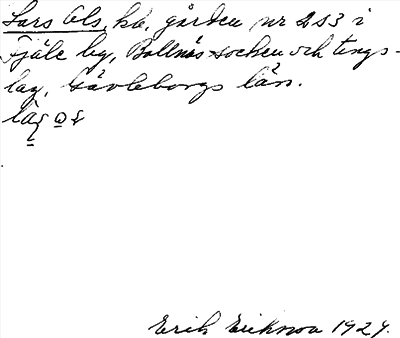 Lars Ols, ha, gården nr 2 o 3 i
Fjäle by, Bollnäs socken och tings-
lag, Gävleborgs län.
Erik Eriksson 1924.